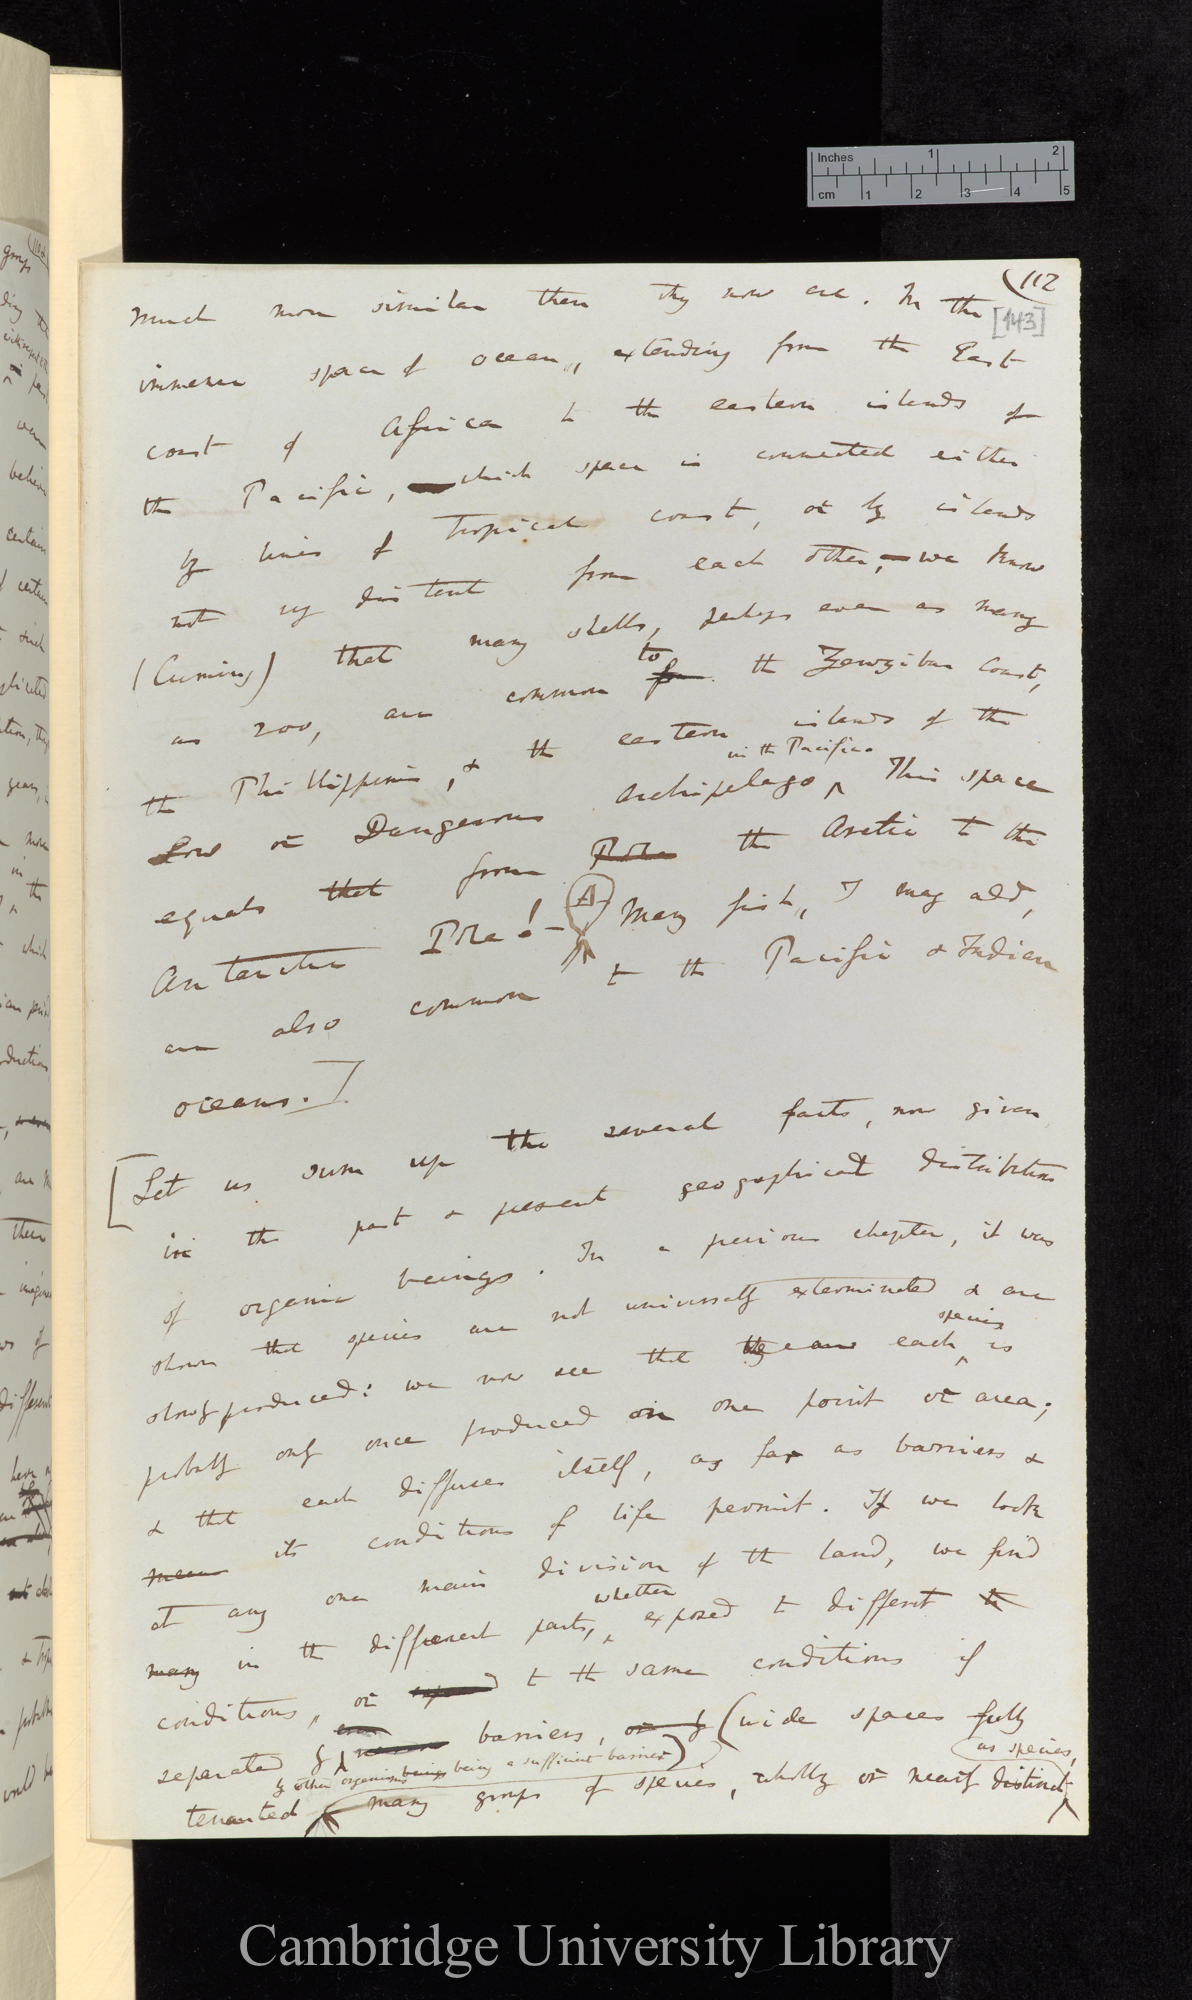 Inches 1 2
cm 1 2 3 4 5
112
[143]
much more similar than they now are. In the
immense space of ocean, extending from the East
coast of Africa to the eastern islands of
the Pacific, which space is connected either
by lines of tropical coast, or by islands
not very distant from each other, we know
(Cuming) that many shells, perhaps even as many
as 200, are common to from the Zanzibar coast,
the Phillippines, & the eastern islands of the
Low or Dangerous Archipelago in the Pacific. This space
equals that from Pole the Arctic to the
Antarctic Pole! — A Many fish, I may add,
are also common to the Pacific & Indian
oceans.]
[Let us sum up the several facts, now given
in the past & present geographical distribution
of organic beings. In a previous chapter, it was
shown that species are not universally exterminated & are
slowly produced: we now see that they are each species is
probably only once produced on one point or area;
& that each diffuses itself, as far as barriers &
mean its conditions of life permit. If we look
at any one main division of the land, we find
many in the different parts, whether exposed to different to
conditions, or exposed to the same conditions if
separated by barriers, or by (wide spaces fully
tenanted by other organisms beings being a sufficient barrier)
many groups of species, wholly or nearly distinct as species,
Cambridge University Library